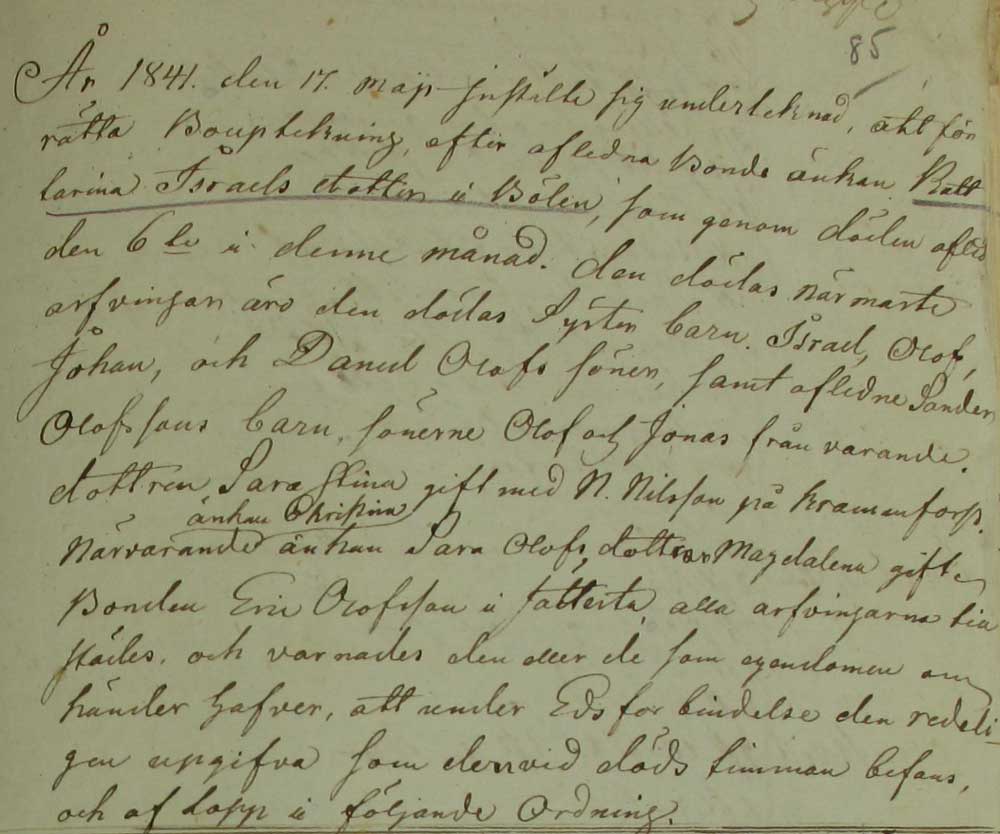 85
År 1841. den 17. maji instälte sig underteknad, att för
rätta Bouptekning, efter afledna Bonde änkan Katt
tarina Israels dotter i Bölen, som genom döden afled
den 6te i denne månad. den dödas närmaste
arfvingar äro den dödas Syster barn. Israel, Olof,
Johan, och Daniel Olofs söner, samt afledne Sanders
Olofssons barn, sönerne Olof och Jonas från varande.
dottren Sara Stina gift med N. Nilsson på kramfors.
änkan Christina
Närvarande änkan Sara Olofs dotter Magdalena gift
Bonden Eric Olofsson i Sättersta, alla arfvingarna till
städes. och varnades den eller de som egendomen om
händer hafver, att under Eds för bindelse den redeli-
gen upgifva som dervid döds timman befans,
och af lopp i följande Ordning.